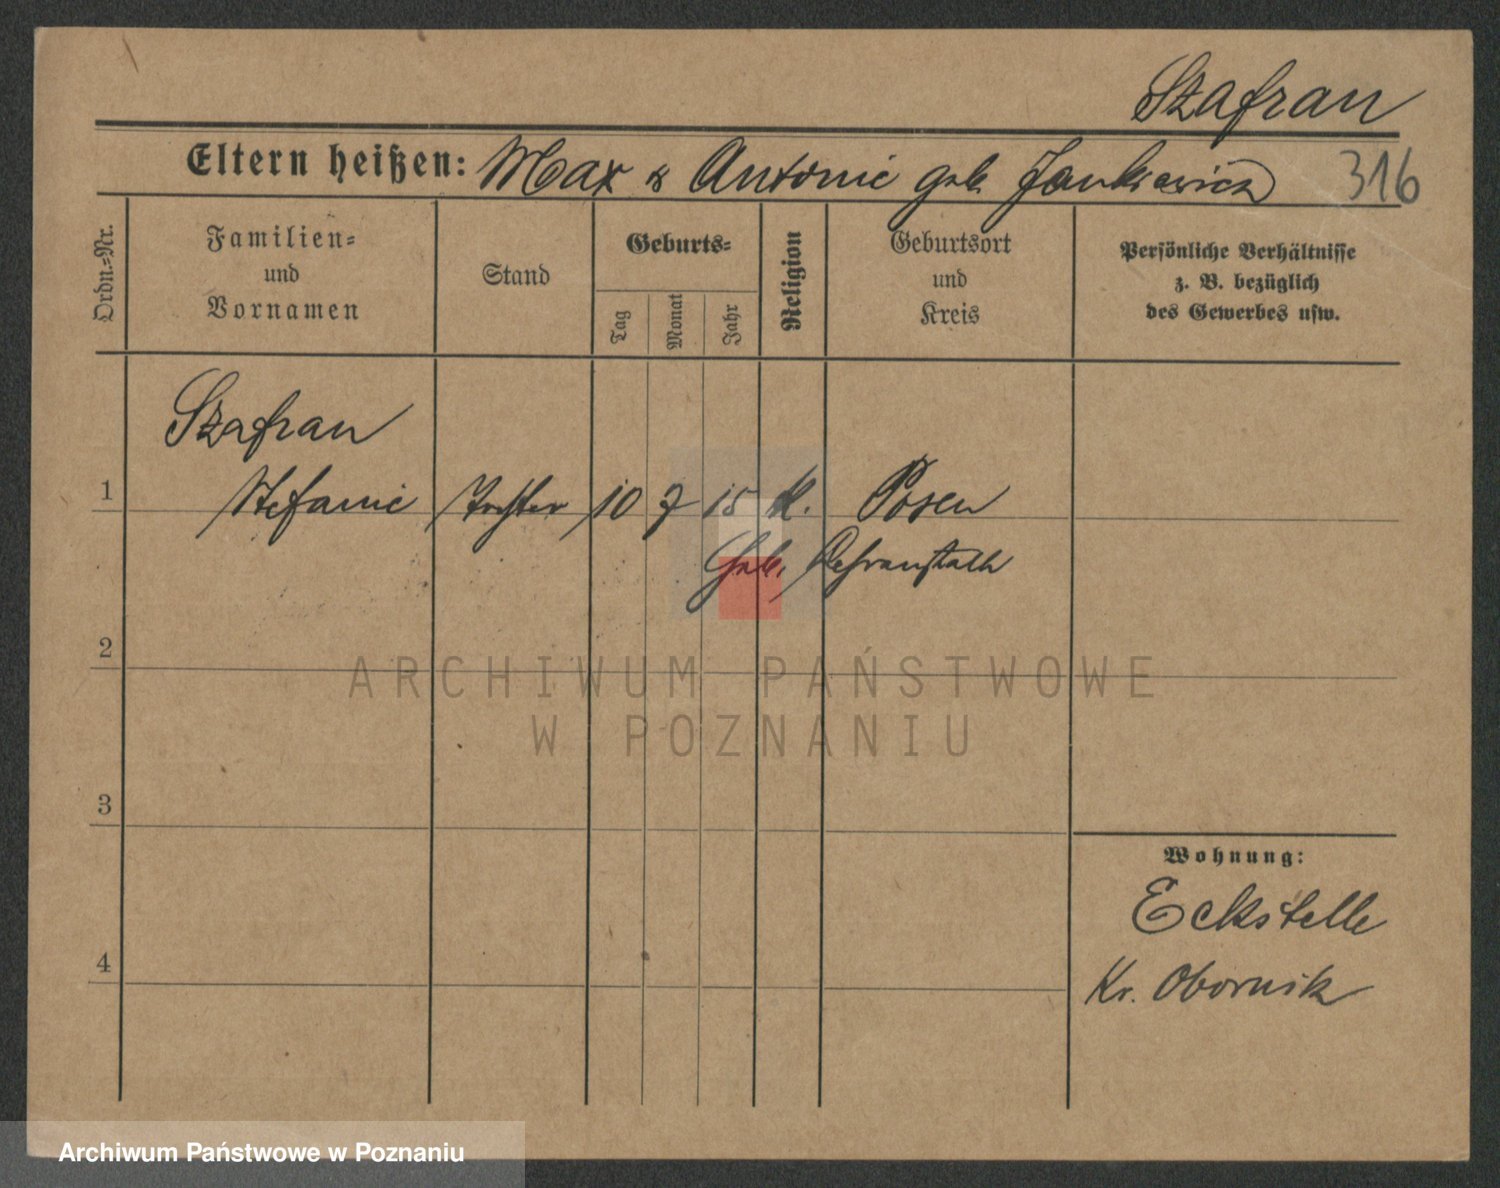 Szafran
Eltern heißen: Max & Antonie geb. Jankiewicz 316
Ordn.-Nr.
Familien-
und
Vornamen
Stand
Geburts-
Tag
Monat
Jahr
Religion
Geburtsort
und
Kreis
Persönliche Verhältnisse
z. B. bezüglich
des Gewerbes usw.
Szafran
1 Stefanie Tochter 10 7 15 K. Posen
Geb.
2
ARCHIWUM PAŃSTWOWE
W POZNANIU
3
Wohnung:
Eckstelle
4
Kr. Obornik
Archiwum Państwowe w Poznaniu